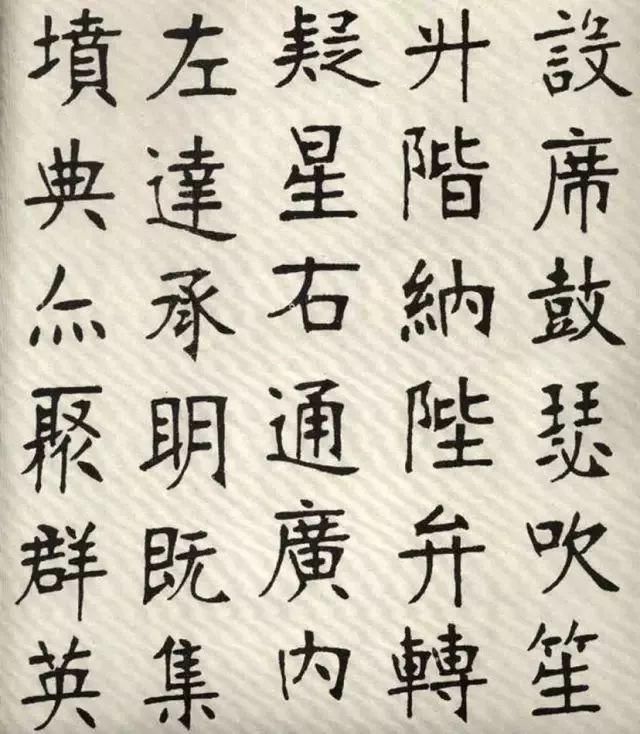 設席鼓瑟吹笙
升階納陛弁轉
疑星右通廣內
左達承明既集
墳典亦聚群英